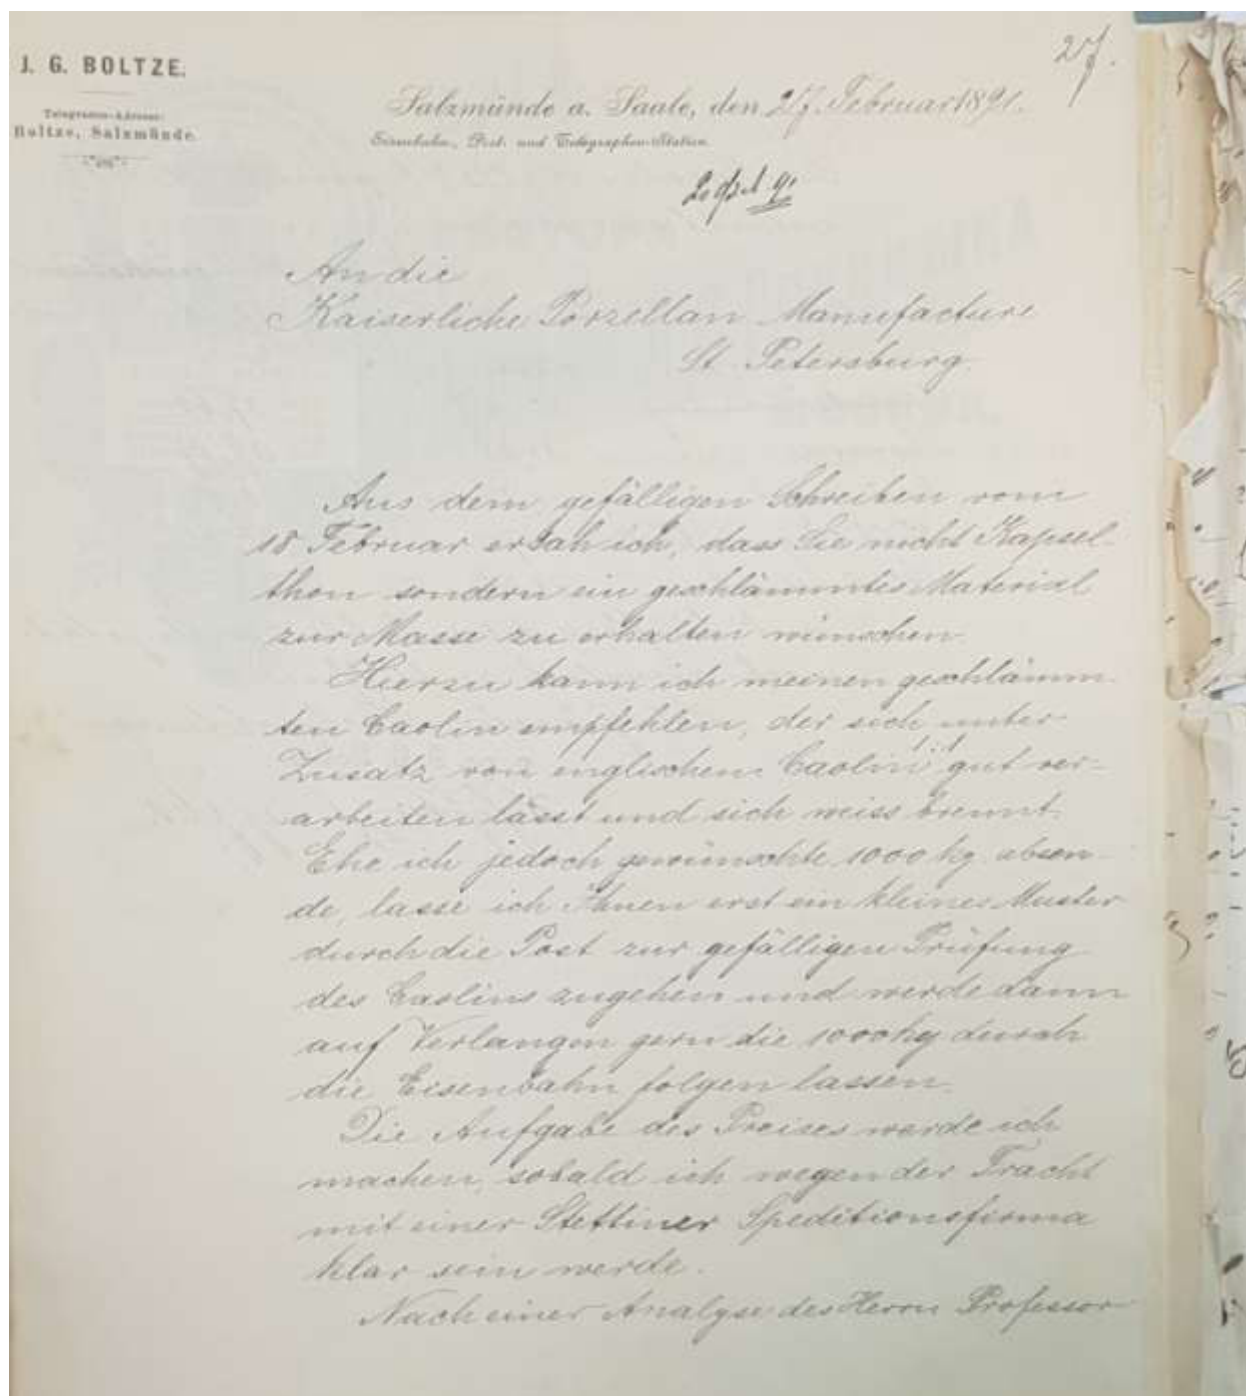 27.
J. G. BOLTZE.
Telegramm-Adresse:
Boltze, Salzmünde.
Salzmünde a. Saale, den 27. Februar 1891.
Eisenbahn-, Post- und Telegraphen-Station.
An die
Kaiserliche Porzellan Manufacture
St. Petersburg
Aus dem gefälligen Schreiben vom
18 Februar ersah ich, dass Sie nicht Kapsel-
thon sondern ein geschlämmtes Material
zur Masse zu erhalten wünschen.
Hierzu kann ich meinen geschlämm-
ten Caolin empfehlen, der sich unter
Zusatz von englischen Caolin gut ver-
arbeiten lässt und sich weiss brennt.
Ehe ich jedoch gewünschte 1000 kg absen-
de, lasse ich Ihnen erst ein kleines Muster
durch die Post zur gefälligen Prüfung
des Caolins zugehen und werde dann
auf Verlangen gern die 1000 kg durch
die Eisenbahn folgen lassen.
Die Aufgabe des Preises werde ich
machen, sobald ich wegen der Fracht
mit einer Stettiner Speditionsfirma
klar sein werde.
Nach einer Analyse des Herrn Professor